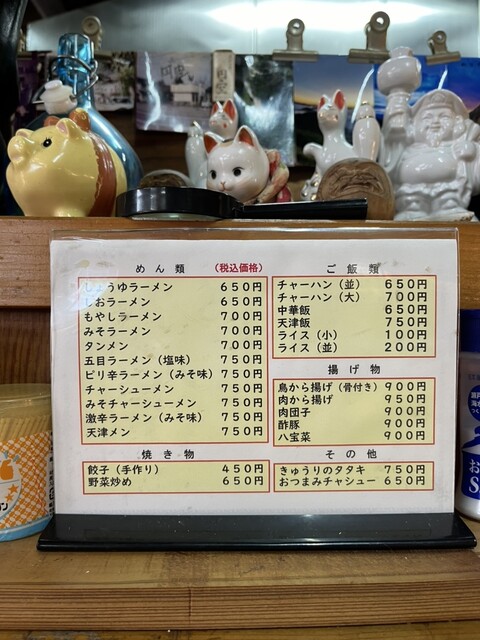 めん類 (税込価格)
しょうゆラーメン 650円
しおラーメン 650円
もやしラーメン 700円
みそラーメン 700円
タンメン 700円
五目ラーメン(塩味) 750円
ピリ辛ラーメン(みそ味) 750円
チャーシューメン 750円
みそチャーシューメン 750円
激辛ラーメン(みそ味) 750円
天津メン 750円
焼き物
餃子(手作り) 450円
野菜炒め 650円
ご飯類
チャーハン(並) 650円
チャーハン(大) 700円
中華飯 650円
天津飯 750円
ライス(小) 100円
ライス(並) 200円
揚げ物
鳥から揚げ(骨付き) 900円
肉から揚げ 950円
肉団子 900円
酢豚 900円
八宝菜 900円
その他
きゅうりのタタキ 750円
おつまみチャシュー 650円